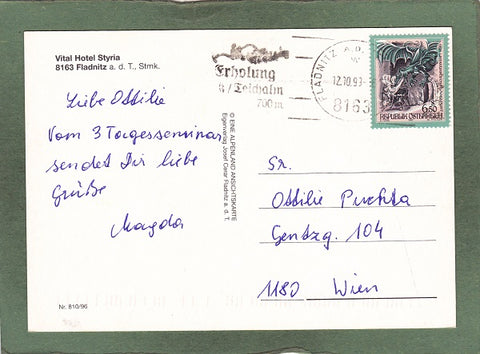 Vital Hotel Styria
8163 Fladnitz a. d. T., Stmk.
Liebe Ottilie
Vom 3 Tagesseminar
sendet Dir liebe
Grüße
Magda
Nr. 810/96
© EINE ALPENLAND ANSICHTSKARTE
Eigenverlag Josef Cerar Fladnitz a. d. T.
Erholung
Teichalm
700 m
FLADNITZ A.D.
12.10.99
8163
6.50
REPUBLIK ÖSTERREICH
Sr.
Ottilie Puchta
Gentzg. 104
1180 Wien